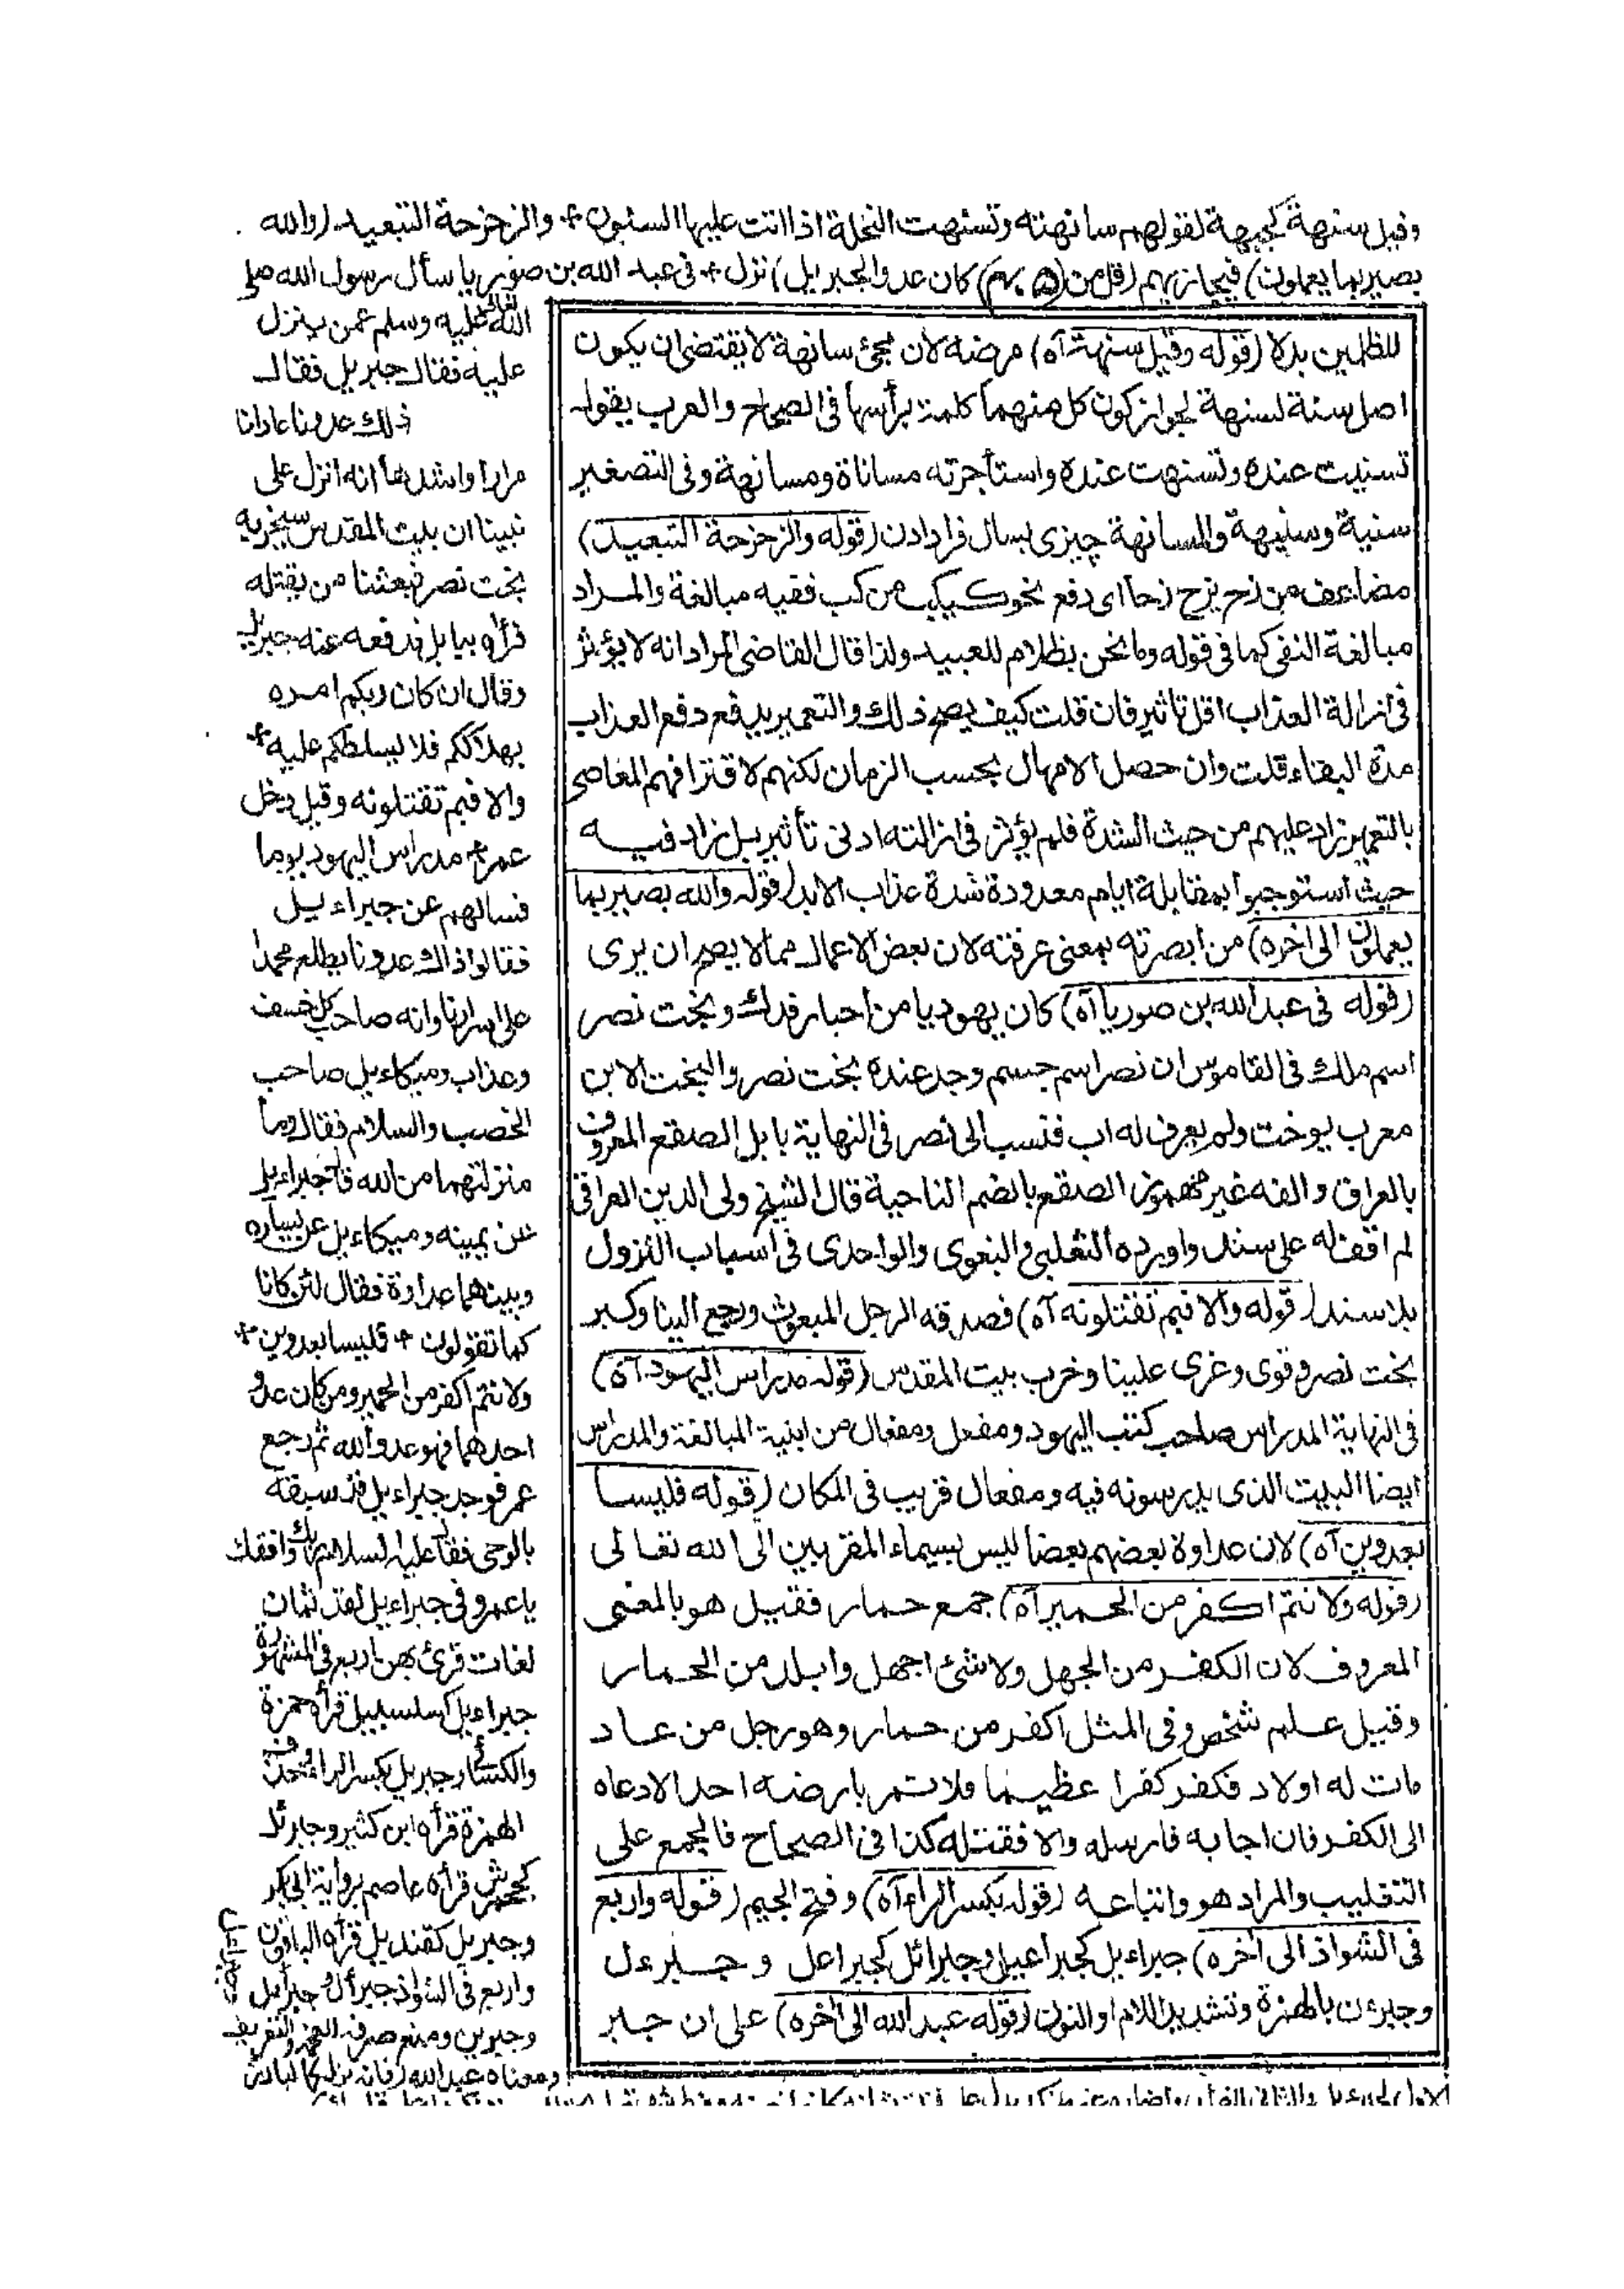 وقيل سنهة كجبهة لقولهم سانهته وتسنهت النخلة اذا اتت عليها السنون + والزحزحة التبعيد (والله
بصير بما يعملون) فيجازيهم (قل من كان عدوا لجبرايل) نزل + فى عبد الله بن صوريا سأل رسول الله صلى
الله تعالى عليه وسلم عمن ينزل
عليه فقال جبريل فقال
ذلك عدونا عادانا
مرارا واشدها انه انزل على
نبينا ان بيت المقدس سيخربه
بخت نصر فبعثنا من يقتله
فرأه ببابل فدفعه عنه جبريل
وقال ان كان ربكم امره
بهلاككم فلا يسلطكم عليه +
والا فبم تقتلونه وقيل دخل
عمر + مدراس اليهود يوما
فسالهم عن جبراءيل
فقالوا ذاك عدونا يطلع محمدا
على اسرارنا وانه صاحب كل خسف
وعذاب وميكاءيل صاحب
الخصب والسلام فقال وما
منزلتهما من الله قالوا جبراءيل
عن يمينه وميكاءيل عن يساره
وبينهما عداوة فقال لئن كانا
كما تقولون + فليسا بعدوين +
ولانتم اكفر من الحمير ومن كان عدو
احدهما فهو عدو الله ثم رجع
عمر فوجد جبراءيل قد سبقه
بالوحى فقال عليه السلام ربك وافقك
يا عمر وفى جبراءيل لغات ثمان
لغات قرئ بهن اربع فى المشهورة
جبراءيل كسلسبيل قرأه حمزة
والكسائى وجبريل بكسر الراء وحذف
الهمزة قرأه ابن كثير وجبرئل
كجحمرش قرأه عاصم برواية ابى بكر
وجبريل كقنديل قرأه الباقون
واربع فى الشواذ جبرأل وجبرايل
وجبرين ومنع صرفه العجمة والتعريف
ومعناه عبد الله (فانه نزله) البارز
للظلمين بدلا (قوله وقيل سنهة آه) مرضه لان مجئ سانهة لا يقتضى ان يكون
اصل سنة لسنهة لجواز كون كل منهما كلمة برأسها فى الصحاح والعرب يقول
تسنيت عنده وتسنهت عنده واستأجرته مساناة ومسانهة وفى التصغير
سنية وسنيهة والمسانهة چيزى بسال فرا دادن (قوله والزحزحة التبعيد)
مضاعف من زح يزح زحا اى دفع نحو كبكب من كب ففيه مبالغة والمراد
مبالغة النفى كما فى قوله وما نحن بظلام للعبيد ولذا قال القاضى المراد انه لا يؤثر
فى ازالة العذاب اقل تاثير فان قلت كيف يصح ذلك والتعمير يدفع دفع العذاب
مدة البقاء قلت وان حصل الامهال بحسب الزمان لكنهم لاقترافهم المعاصى
بالتعمير زاد عليهم من حيث الشدة فلم يؤثر فى ازالته ادنى تأثير بل زاد فيه
حيث استوجبوا بمقابلة ايام معدودة شدة عذاب الابد (قوله والله بصير بما
يعملون الى اخره) من ابصرته بمعنى عرفته لان بعض الاعمال مما لا يصح ان يرى
(قوله فى عبد الله بن صوريا آه) كان يهوديا من احبار فدك وبخت نصر
اسم ملك فى القاموس ان نصر اسم جسم وجد عنده بخت نصر والبخت الابن
معرب بوخت ولم يعرف له اب فنسب الى نصر فى النهاية بابل الصقع المعروف
بالعراق والفه غير مهموز الصقع بالضم الناحية قال الشيخ ولى الدين العراقى
لم اقف له على سند واورده الثعلبى والبغوى والواحدى فى اسباب النزول
بلا سند (قوله والا فبم تقتلونه آه) فصدقه الرجل المبعوث ورجع الينا وكبر
بخت نصر وقوى وغزى علينا وخرب بيت المقدس (قوله مدراس اليهود آه)
فى النهاية المدراس صاحب كتب اليهود ومفعل ومفعال من ابنية المبالغة والمدراس
ايضا البيت الذى يدرسونه فيه ومفعال قريب فى المكان (قوله فليسا
بعدوين آه) لان عداوة بعضهم بعضا ليس بسيماء المقربين الى الله تعالى
(قوله ولانتم اكفر من الحمير آه) جمع حمار فقيل هو بالمعنى
المعروف لان الكفر من الجهل ولا شئ اجهل وابلد من الحمار
وقيل علم شخص وفى المثل اكفر من حمار وهو رجل من عاد
مات له اولاد فكفر كفرا عظيما فلا تمر بارضه احد الا دعاه
الى الكفر فان اجابه فارسله والا فقتله كذا فى الصحاح فالجمع على
التغليب والمراد هو واتباعه (قوله بكسر الراء آه) وفتح الجيم (قوله واربع
فى الشواذ الى آخره) جبراءيل كجبراعيل وجبرائل كجبراعل وجبرءل
وجبرءن بالهمزة وتشديد اللام او النون (قوله عبد الله الى اخره) على ان جبر